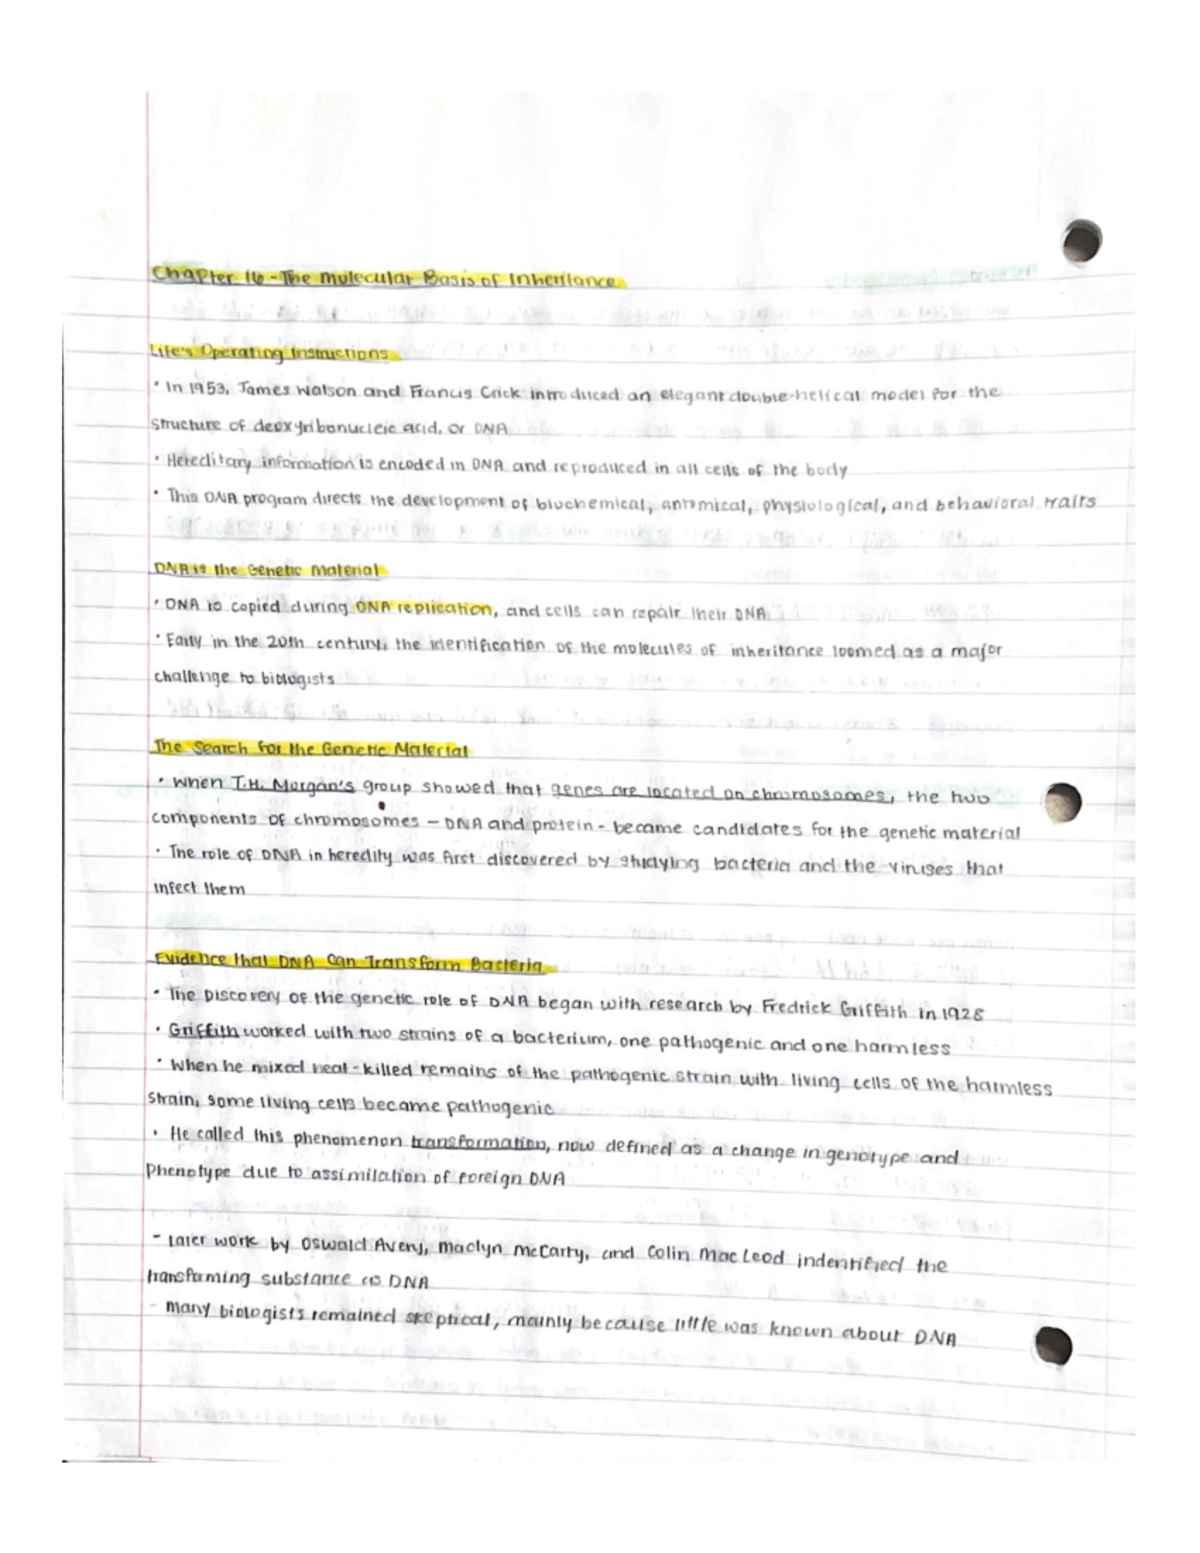 Chapter 16 - The Molecular Basis of Inheritance
Life's Operating Instructions
· In 1953, James Watson and Francis Crick introduced an elegant double-helical model for the
structure of deoxyribonucleic acid, or DNA
· Hereditary information is encoded in DNA and reproduced in all cells of the body
· This DNA program directs the development of biochemical, antmical, physiological, and behavioral traits
DNA is the Genetic Material
· DNA is copied during DNA replication, and cells can repair their DNA
· Early in the 20th century, the identification of the molecules of inheritance loomed as a major
challenge to biologists
The Search for the Genetic Material
· When T.H. Morgan's group showed that genes are located on chromosomes, the two
components of chromosomes - DNA and protein - became candidates for the genetic material
· The role of DNA in heredity was first discovered by studying bacteria and the viruses that
infect them
Evidence that DNA Can Transform Bacteria
· The Discovery of the genetic role of DNA began with research by Fredrick Griffith in 1928
· Griffith worked with two strains of a bacterium, one pathogenic and one harmless
· When he mixed heat-killed remains of the pathogenic strain with living cells of the harmless
strain, some living cells became pathogenic
· He called this phenomenon transformation, now defined as a change in genotype and
Phenotype due to assimilation of foreign DNA
- later work by Oswald Avery, Maclyn McCarty, and Colin MacLeod indentified the
transforming substance as DNA
- Many biologists remained skeptical, mainly because little was known about DNA